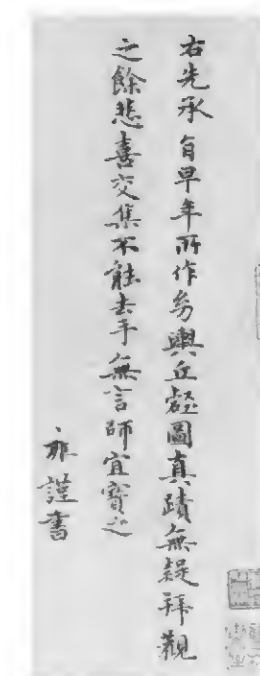 右先承旨早年所作幼輿丘壑圖真蹟無疑拜觀
之餘悲喜交集不能去手無言師宜寶之
雍謹書